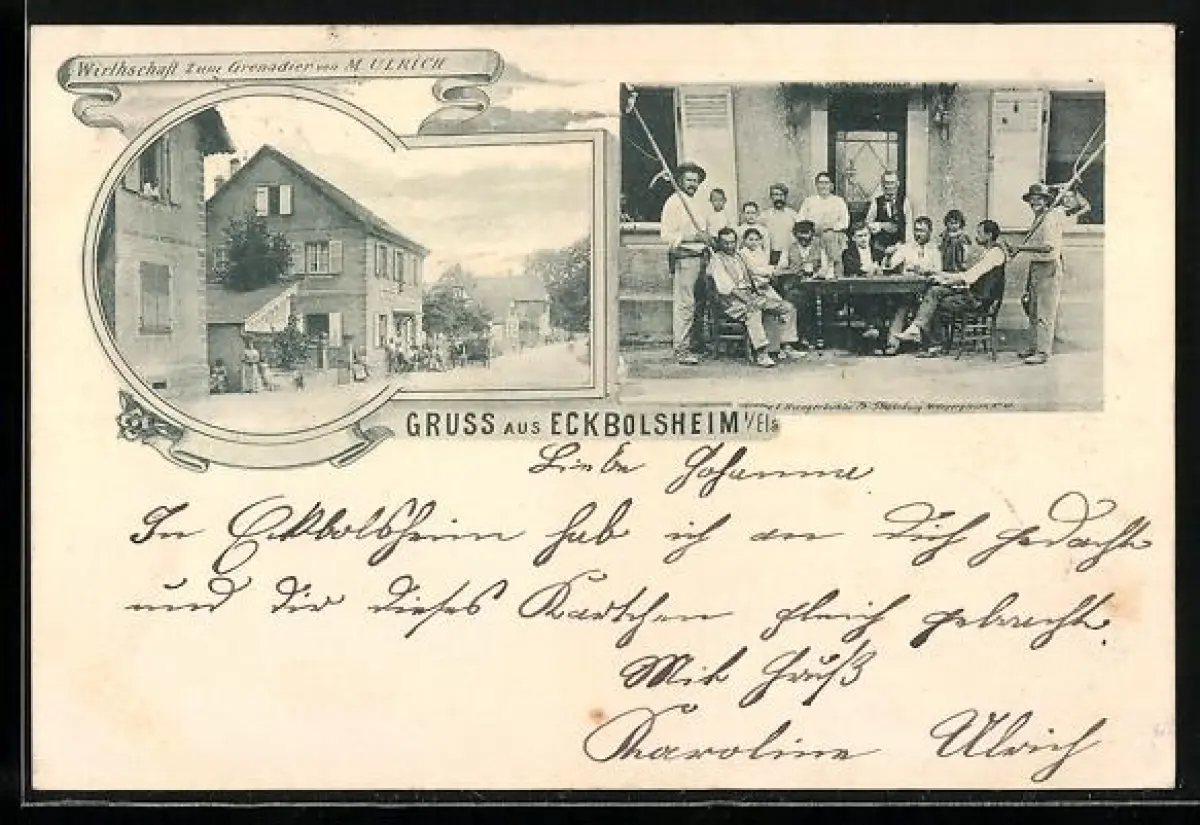 Wirthschaft zum Grenadier von M. ULRICH
GRUSS AUS ECKBOLSHEIM i/Els
Liebe Johanna
In Eckbolsheim hab ich an Dich gedacht
und dir dieses Kärtchen gleich gebracht.
Mit Gruß
Karoline Ulrich